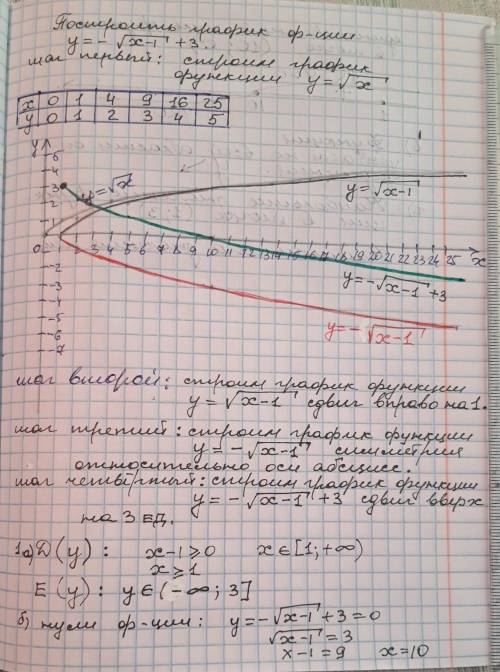 Построить график ф-ции
y = - √x-1 + 3.
шаг первый: строим график
функции y = √x
x 0 1 4 9 16 25
y 0 1 2 3 4 5
y
5
4
3
2
1
0
-2
-3
-4
-5
-6
-7
y = √x
y = √x-1
2 3 4 5 6 7 8 9 10 11 12 13 14 15 16 17 18 19 20 21 22 23 24 25 x
y = -√x-1 + 3
y = - √x-1
шаг второй: строим график функции
y = √x-1 сдвиг вправо на 1.
шаг третий: строим график функции
y = - √x-1 симметрия
относительно оси абсцисс.
шаг четвёртый: строим график функции
y = - √x-1 + 3 сдвиг вверх
на 3 ед.
1а) D(y): x-1 ⩾ 0 x ∈ [1; +∞)
x ⩾ 1
E(y): y ∈ (-∞; 3]
б) нули ф-ции: y = -√x-1 + 3 = 0
√x-1 = 3
x-1 = 9 x = 10